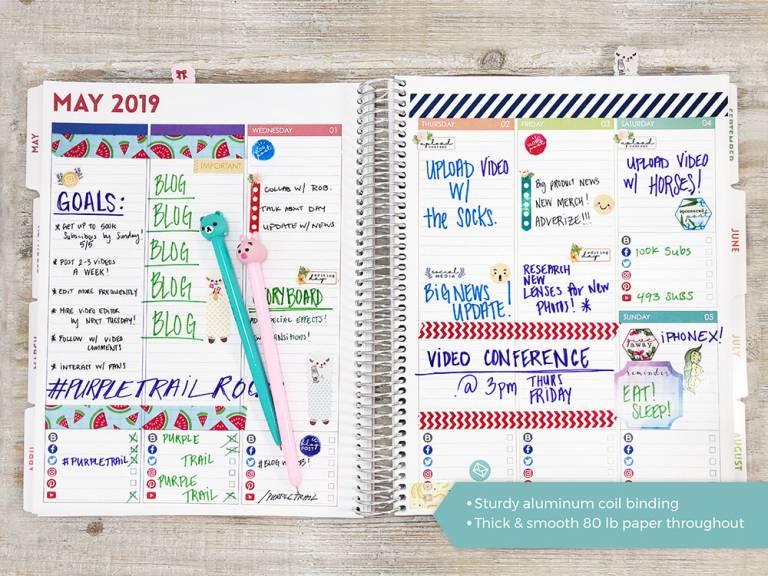 MAY 2019
MAY
IMPORTANT
GOALS:
* GET UP TO 500K
Subscribers by Sunday!
5/5
* POST 2-3 VIDEOS
A WEEK!
* EDIT MORE FREQUENTLY
* HIRE VIDEO EDITOR
by NEXT TUESDAY!
* FOLLOW W/ VIDEO
COMMENTS
* INTERACT W/ FANS
#PURPLETRAIL
BLOG
BLOG
BLOG
BLOG
BLOG
#PURPLETRAIL
PURPLE
TRAIL
PURPLE
TRAIL
WEDNESDAY 01
COLLAB W/ ROB.
TALK ABOUT DAY
UPDATE W/ NEWS
editing
day
blog
POST
/PURPLETRAIL
THURSDAY 02
upload
UPLOAD VIDEO
W/
the SOCKS.
SOCIAL
MEDIA
BIG NEWS
UPDATE!
VIDEO CONFERENCE
@ 3pm THURS
FRIDAY
FRIDAY 03
upload
Big PRODUCT NEWS
NEW MERCH!
ADVERIZE!!!
editing
day
RESEARCH
NEW
LENSES FOR NEW
PHOTOS! *
SATURDAY 04
upload
UPLOAD VIDEO
W/ HORSES!
sponsored
100K Subs
493 SUBS
SUNDAY 05
give
away
iPHONEX!
reminder
EAT!
SLEEP!
SEPTEMBER
JUNE
JULY
AUGUST
• Sturdy aluminum coil binding
• Thick & smooth 80 lb paper throughout